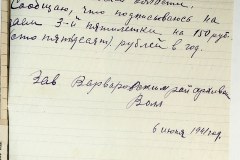 Сообщаю, что подписываюсь на
заем 3-й пятилетки на 150 руб
(сто пятьдесят) рублей в год.
Зав Варваровским рай
6 июня 1941 год